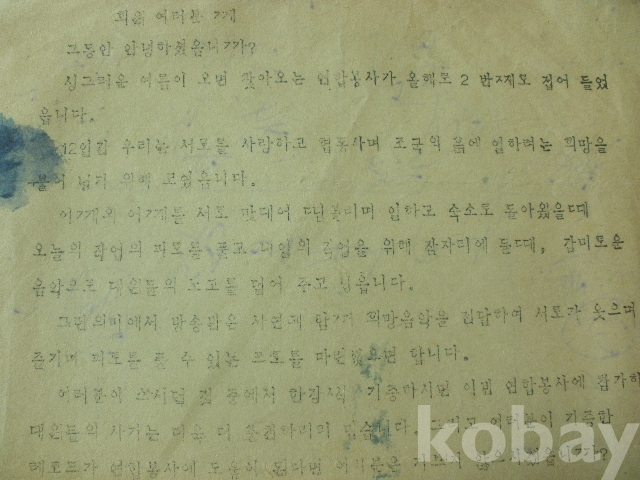 회원 여러분 7ㅔ
그동안 안녕하셨읍니7ㅏ?
싱그러운 여름이 오면 찾아오는 연합봉사가 올해로 2 번째로 접어 들었
읍니다.
12일간 우리는 서로를 사랑하고 협동하며 조국의 에 임하려는 희망을
심어 위해 모였읍니다.
어7ㅐ와 어7ㅐ를 서로 맞대어 일하고 숙소로 돌아왔을때
오늘의 작업의 피로를 풀고 내일의 작업을 위해 잠자리에 들때, 감미로운
음악으로 대원들의 노고를 덜어 주고 싶읍니다.
그런의미에서 방송반은 사연과 함7ㅔ 희망음악을 하여 서로가 웃으며
즐기며 피로를 풀 수 있는 프로를 마련 합니다.
여러분이 중에서 한 기증하시면 이번 연합봉사에 참가하
대원들의 사기는 더욱 더 있습니다. 그리고 여러분이 기증한
레코드가 연합봉사에 도움이 된다면
kobay